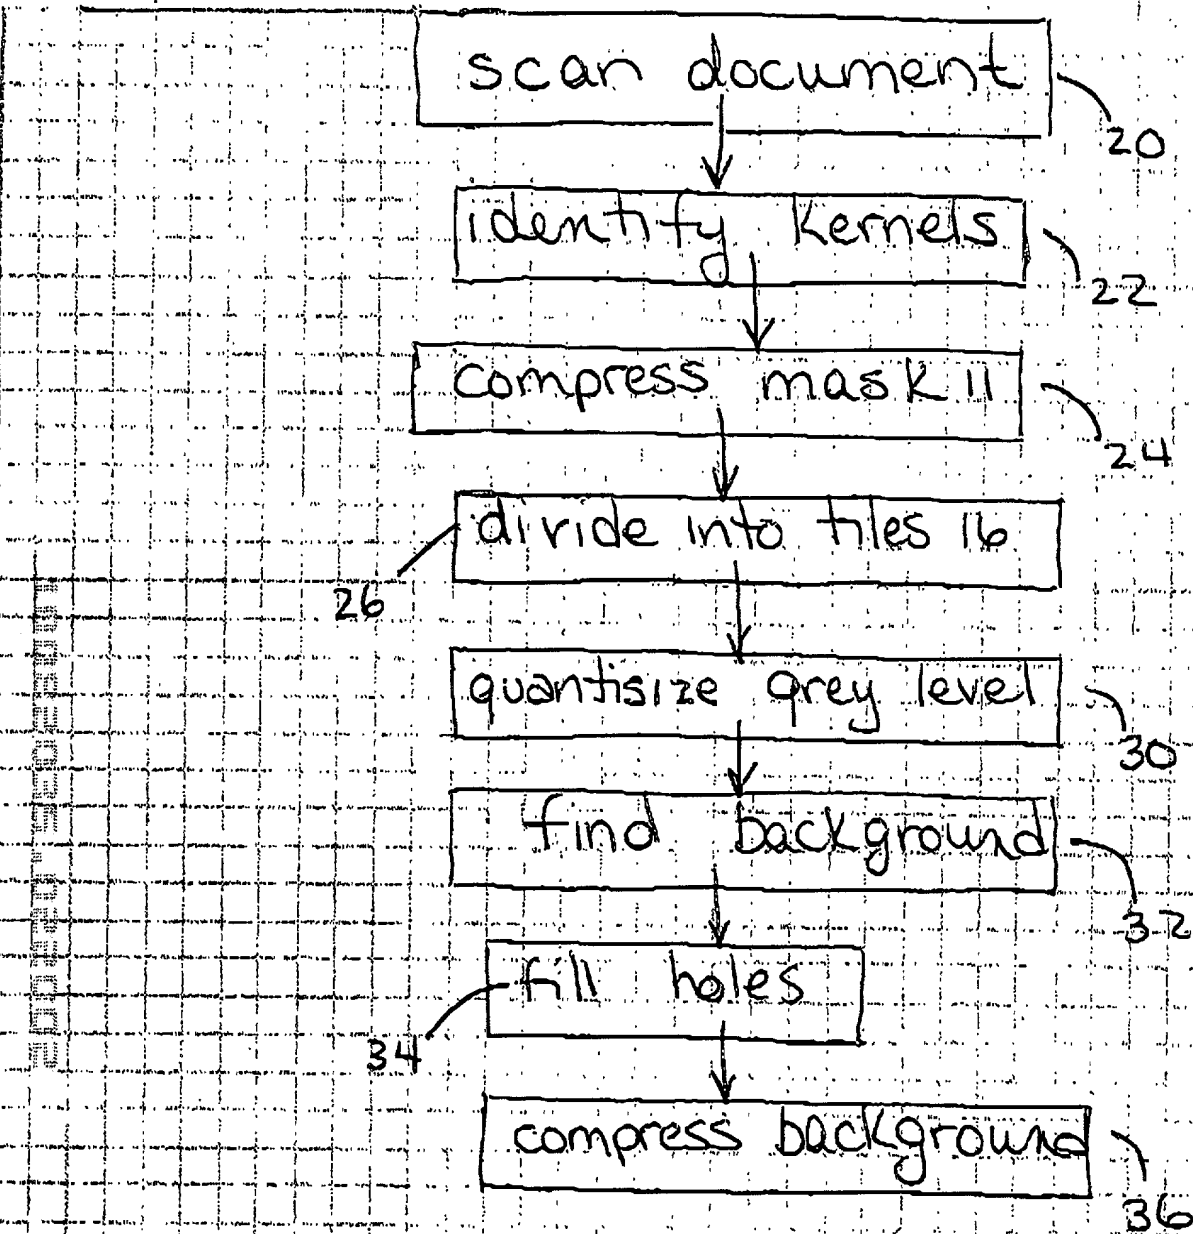 scan document
20
identify kernels
22
compress mask 11
24
divide into tiles 16
26
quantisize grey level
30
find background
32
fill holes
34
compress background
36